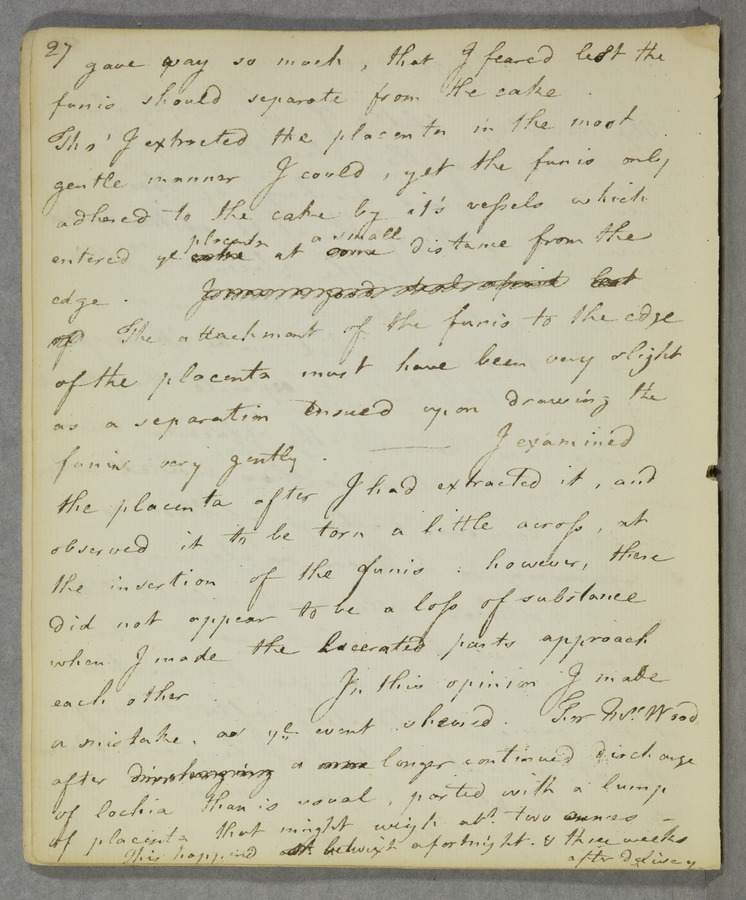 27
gave way so much, that I feared lest the
funis should separate from the cake
Tho' I extracted the placenta in the most
gentle manner I could, yet the funis only
adhered to the cake by it's vessels which
placenta a small
entered ye cake at some distance from the
edge.
of The attachment of the funis to the edge
of the placenta must have been very slight
as a separation ensued upon drawing the
funis very gently. — I examined
the placenta after I had extracted it, and
observed it to be torn a little across, at
the insertion of the funis: however, there
did not appear to be a loss of substance
when I made the lacerated parts approach
each other. In this opinion I made
a mistake, as ye event shewed. For Mrs. Wood
after discharging a more longer continued discharge
of lochia than is usual, parted with a lump
of placenta that might weigh abt. two ounces –
This happened betwixt a fortnight & three weeks
after delivery